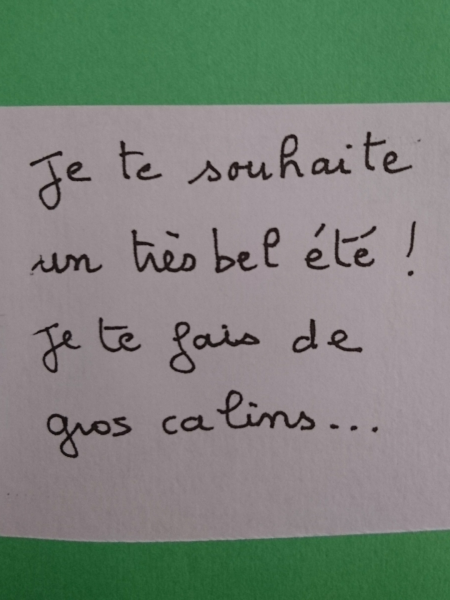 Je te souhaite
un très bel été !
Je te fais de
gros calins...